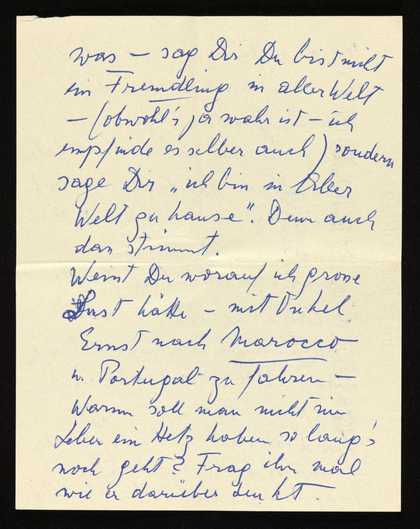 was – sag Dir Du bist nicht
ein Fremdling in aller Welt
– (obwohl's ja wahr ist – ich
empfinde es selber auch) sondern
sage Dir „ich bin in aller
Welt zu hause". Denn auch
das stimmt.
Weisst Du worauf ich grosse
Lust hätte – mit Onkel
Ernst nach Marocco
u. Portugal zu fahren –
Warum soll man nicht im
Leben ein Hetz haben so lang's
noch geht? Frag ihn mal
wie er darüber denkt.